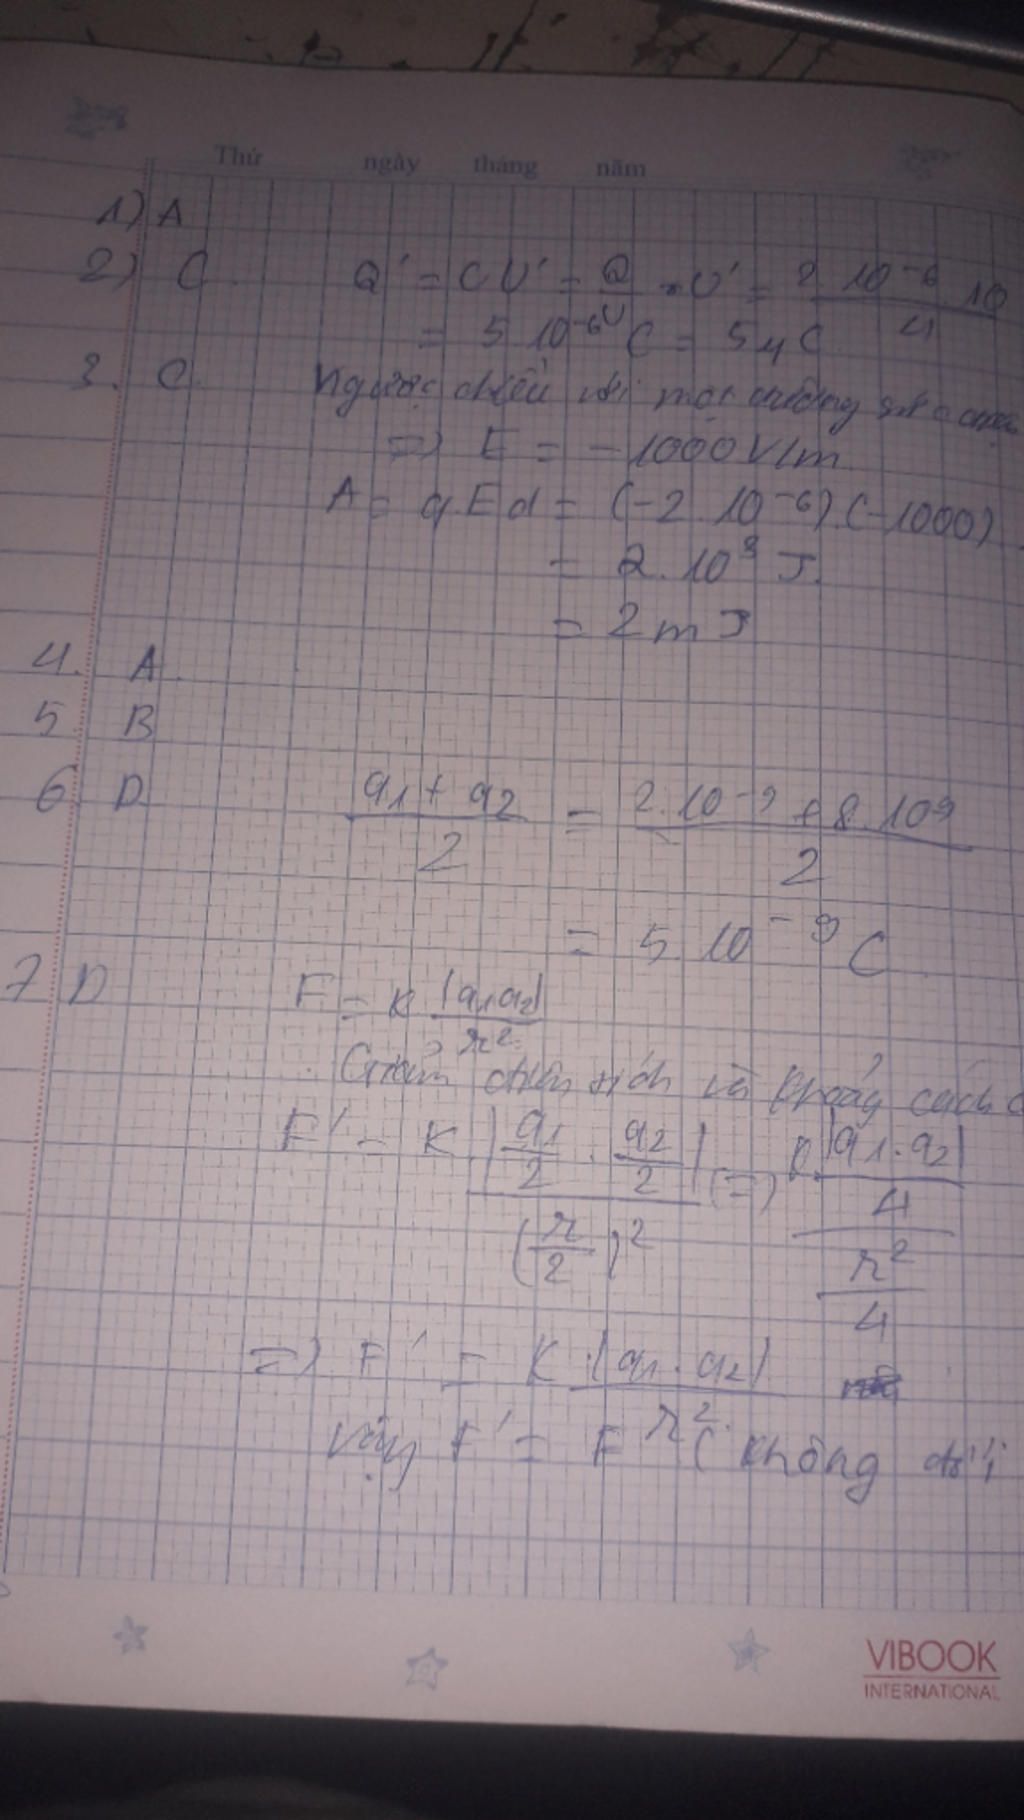 Thứ ngày tháng năm
1) A
2) C Q' = CU' = Q/U . U' = 2 10⁻⁶ 10 / 4
= 5 10⁻⁶ C = 5 μ C
3. C. Ngược chiều với một đường
=> E = -1000 V/m
A = q E d = (-2 10⁻⁶).(-1000)
= 2.10³ J.
= 2 m J
4. A.
5 B
6 D (q1 + q2) / 2 = (2.10⁻⁹ + 8.10⁹) / 2
= 5 10⁻⁹ C
7 D F = K |q1.q2| / r²
Giảm điện tích và khoảng cách
F' = K |q1/2 . q2/2| / (r/2)² (=) (|q1.q2| / 4) / (r² / 4)
=> F' = K.|q1.q2| / r²
Vậy F' = F (không đổi
VIBOOK
INTERNATIONAL